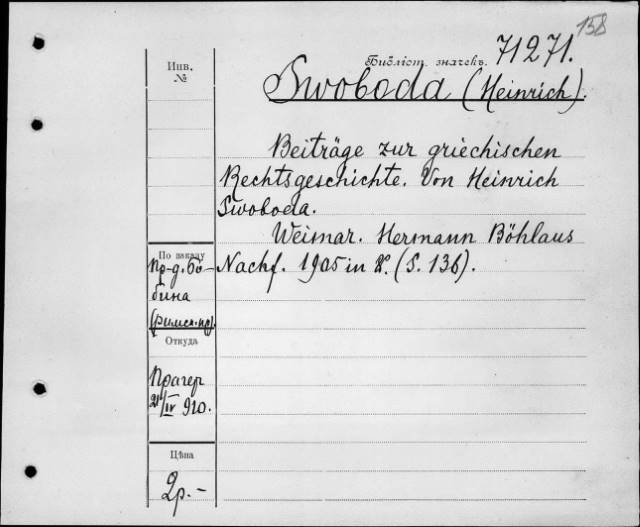 158
Библіот. значекъ. 71271.
Инв.
№
Swoboda (Heinrich).
Beiträge zur griechischen
Rechtsgeschichte. Von Heinrich
Swoboda.
Weimar. Hermann Böhlaus
Nachf. 1905 in 8. (S. 136).
По заказу
Пр-д. Бо-
бина
(римск. пр).
Откуда
Прагер
21/IV 910.
Цѣна
2р.-